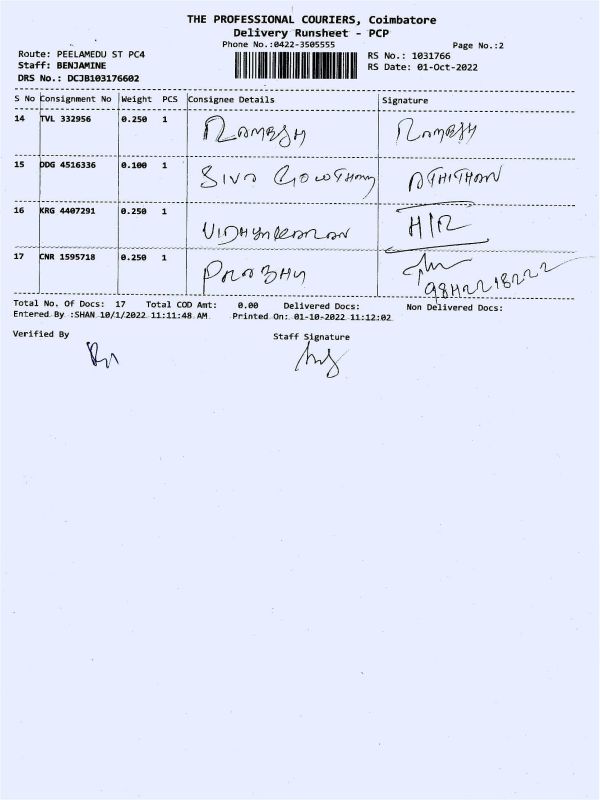 THE PROFESSIONAL COURIERS, Coimbatore
Delivery Runsheet - PCP
Phone No.:0422-3505555 Page No.:2
Route: PEELAMEDU ST PC4 RS No.: 1031766
Staff: BENJAMINE RS Date: 01-Oct-2022
DRS No.: DCJB103176602
S No Consignment No Weight PCS Consignee Details Signature
14 TVL 332956 0.250 1 RAMESH RAMESH
15 DDG 4516336 0.100 1 SIVA GOWTHAM ATHITHAN
16 KRG 4407291 0.250 1 VIDHYAKARAN H/R
17 CNR 1595718 0.250 1 PRABHU
9842218222
Total No. Of Docs: 17 Total COD Amt: 0.00 Delivered Docs: Non Delivered Docs:
Entered By :SHAN 10/1/2022 11:11:48 AM Printed On: 01-10-2022 11:12:02
Verified By Staff Signature